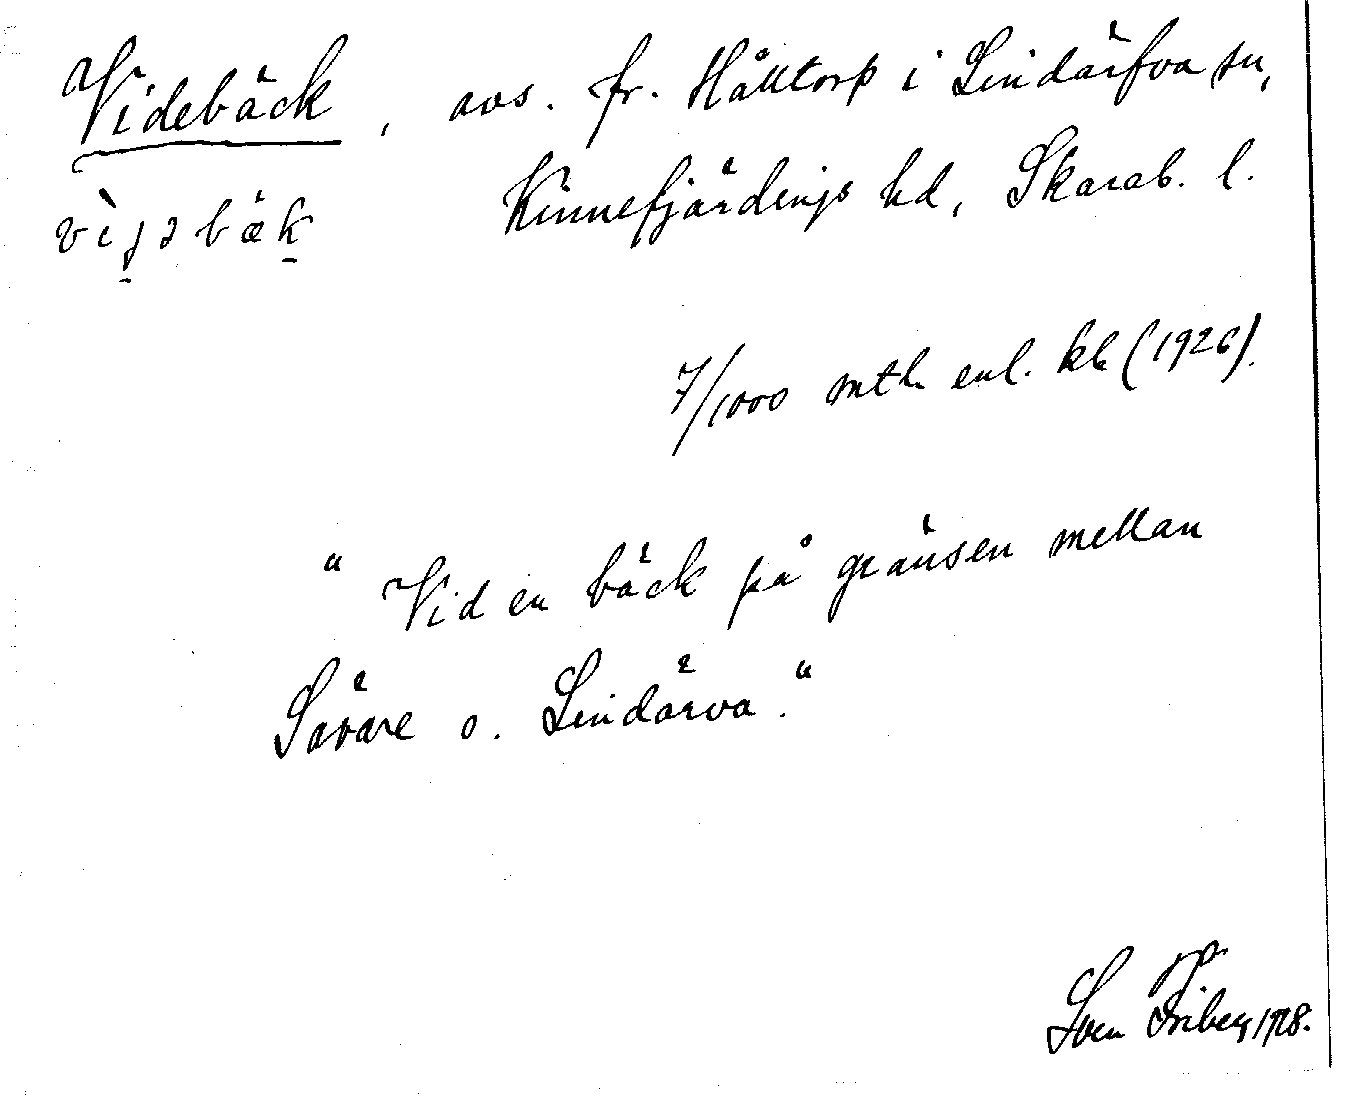 Videbäck, avs. fr. Hålltorp i Lindärfva sn,
Kinnefjärdings hd, Skarab. l.
7/1000 mtl. enl. kb (1926).
"Vid en bäck på gränsen mellan
Sävare o. Lindärva."
Sven Friberg 1928.